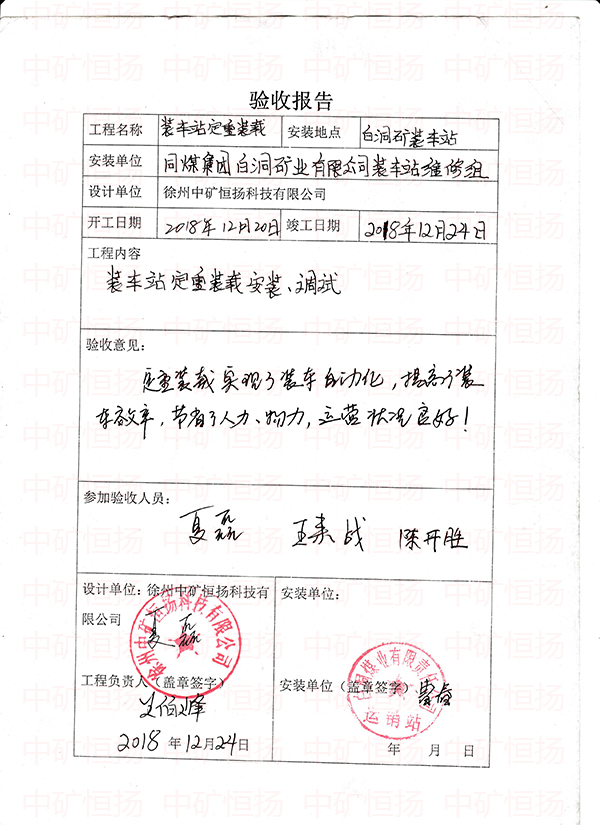 验收报告
工程名称 装车站定重装载 安装地点 白洞矿装车站
安装单位 同煤集团白洞矿业有限公司装车站维修组
设计单位 徐州中矿恒扬科技有限公司
开工日期 2018年12月20日 竣工日期 2018年12月24日
工程内容
装车站定重装载安装、调试
验收意见：
定重装载实现了装车自动化，提高了装
车效率，节省了人力、物力，运营状况良好！
参加验收人员：
夏磊 陈开胜
设计单位：徐州中矿恒扬科技有 安装单位：
限公司
夏磊
徐州中矿恒扬科技有限公司
工程负责人（盖章签字） 安装单位（盖章签字）
运销站
2018年12月24日 年 月 日
中矿恒扬